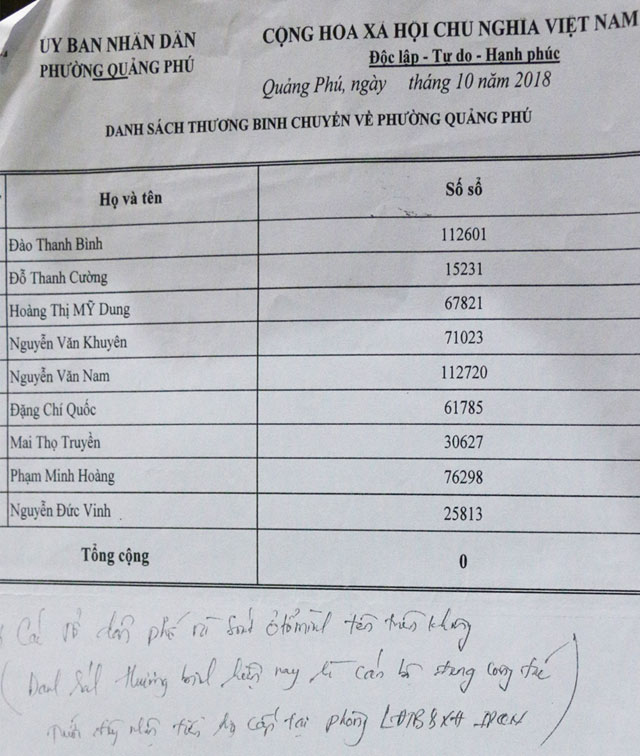 ỦY BAN NHÂN DÂN
PHƯỜNG QUẢNG PHÚ
CỘNG HÒA XÃ HỘI CHỦ NGHĨA VIỆT NAM
Độc lập - Tự do - Hạnh phúc
Quảng Phú, ngày tháng 10 năm 2018
DANH SÁCH THƯƠNG BINH CHUYỂN VỀ PHƯỜNG QUẢNG PHÚ
Họ và tên Số sổ
Đào Thanh Bình 112601
Đỗ Thanh Cường 15231
Hoàng Thị MỸ Dung 67821
Nguyễn Văn Khuyên 71023
Nguyễn Văn Nam 112720
Đặng Chí Quốc 61785
Mai Thọ Truyền 30627
Phạm Minh Hoàng 76298
Nguyễn Đức Vinh 25813
Tổng cộng 0
Các tổ dân phố rà soát ở tổ mình tên trên không
(Danh sách thương binh hiện nay là cán bộ đang công tác
tại phòng LĐTB&XH